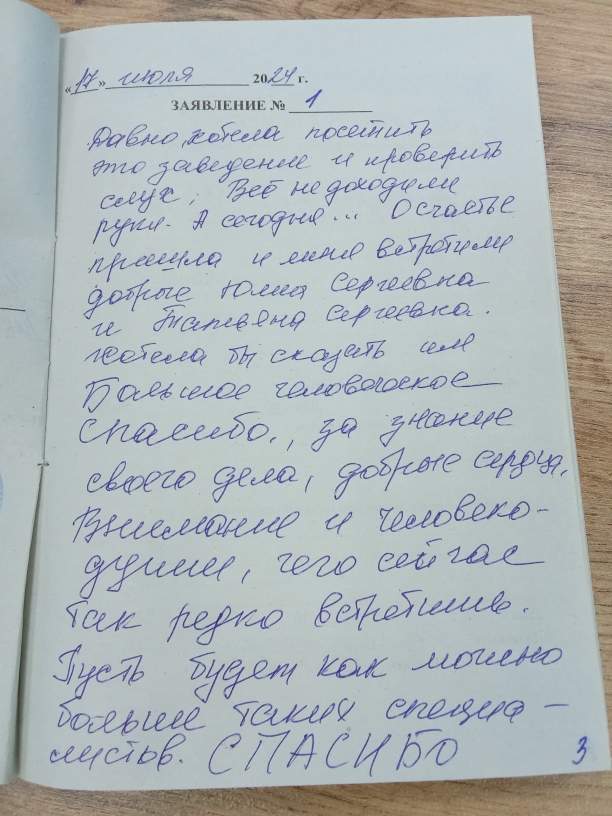 «17» июля 2024 г.
ЗАЯВЛЕНИЕ № 1
Давно хотела посетить
это заведение и проверить
слух. Всё не доходили
руки. А сегодня... О счастье
пришла и меня встретили
добрые Юлия Сергеевна
и Татьяна Сергеевна.
Хотела бы сказать им
Большое человеческое
спасибо, за знание
своего дела, добрые сердца,
Внимание и человеко-
душии, чего сейчас
так редко встретишь.
Пусть будет как можно
больше таких специа-
листов. СПАСИБО
3